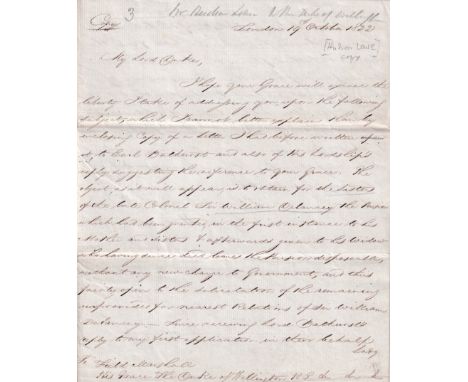 3
Copy
Mr Hudson Lowe to the Duke of Wellington
London 19 October 1822
[Hudson Lowe
copy]
My Lord Duke,
I hope your Grace will excuse the
liberty I take of addressing you upon the following
subject, which I cannot better explain than by
inclosing Copy of a letter I had before written upon
it to Earl Bathurst and also of his Lordship's
reply suggesting the reference to your Grace. The
object as it will appear, is to obtain for the Sisters
of the late Colonel Sir William Delancey the Pension
which had been granted in the first instance to his
Mother and Sisters & afterwards given to his Widow
having since died leaves the Pension disposable
without any new charge to Government, and this
party open to the substitution of the remaining
unprovided for nearest Relations of Sir William
Delancey — Since receiving Lord Bathurst's
reply to my first application in their behalf
Field Marshal
His Grace The Duke of Wellington K.G.